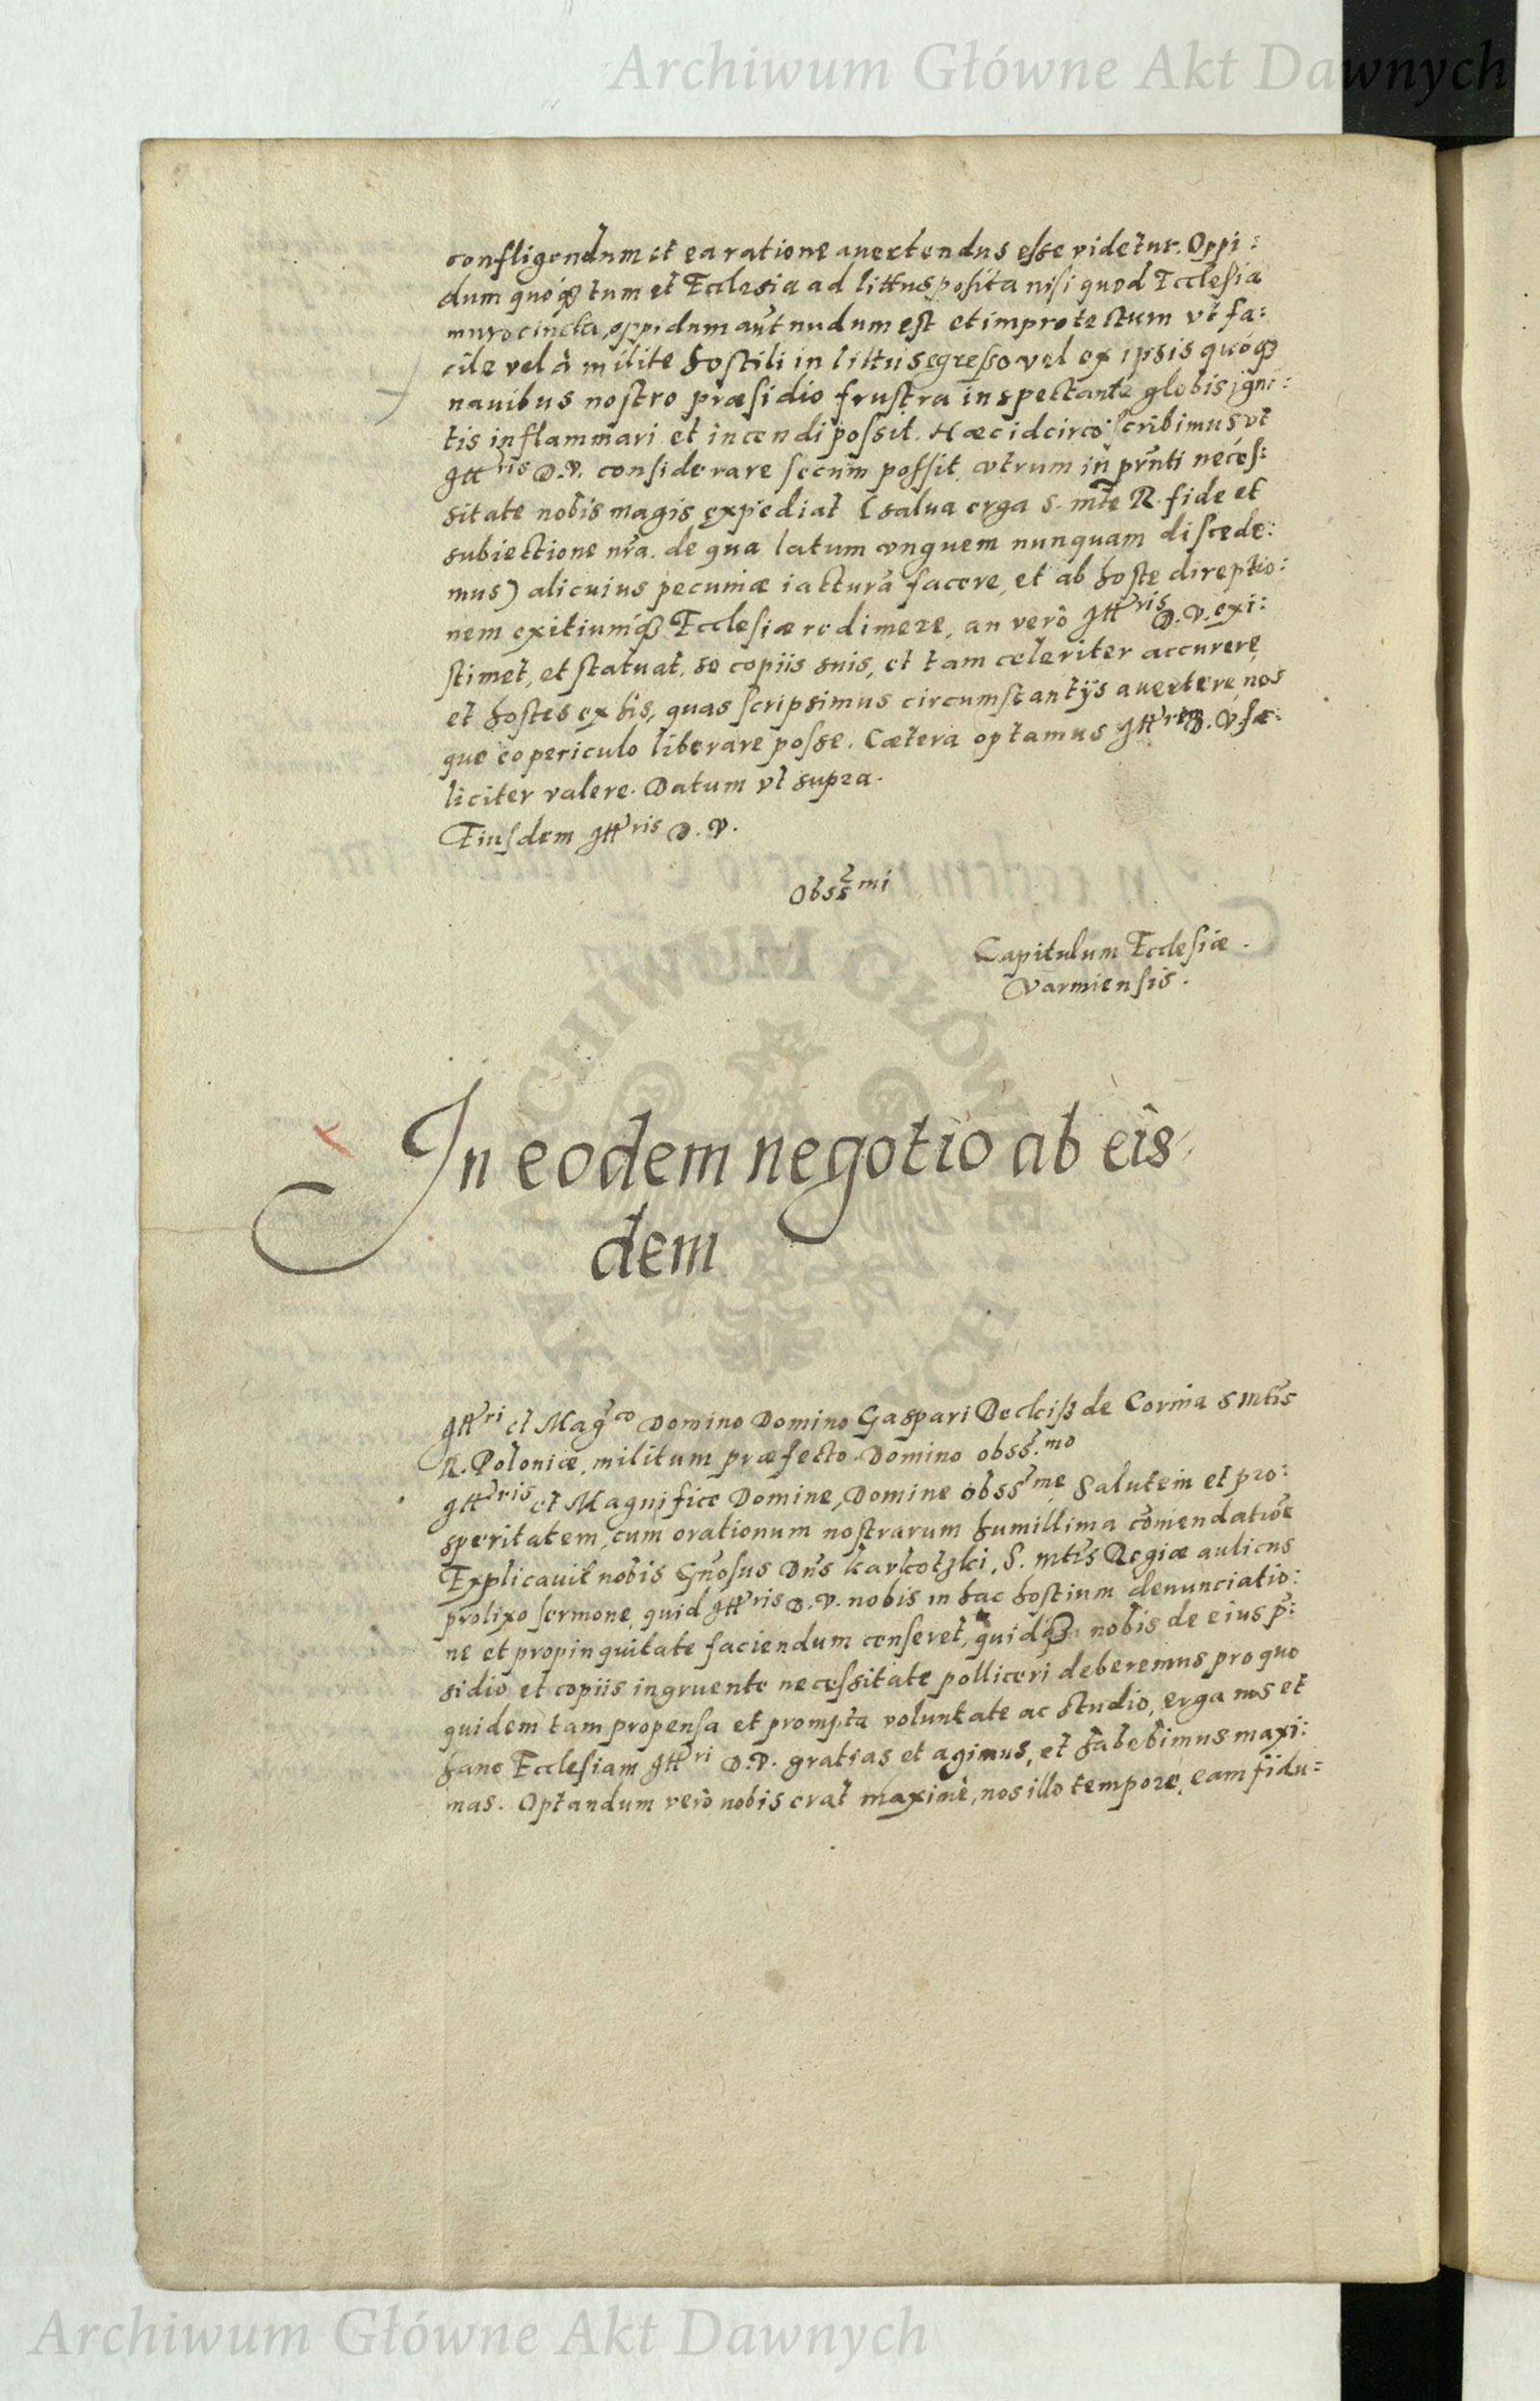 Archiwum Główne Akt Dawnych
confligendum et ea ratione auertendus esse videtur. Oppi:
dum quóq₃ tum et Ecclesia ad littus posita nisi quod Ecclesia
muro cincta, oppidum aūt nudum est et improtectum vt fa:
cile vel à milite hostili in littus egresso vel ex ipsis quóq₃
nauibus nostro præsidio frustra inspectante globis igni:
tis inflammari et incendi possit. Hæc idcirco scribimus vt
Illris D.V. considerare secum possit, vtrum in pr̄nti neces:
sitate nobis magis expediat (salua erga S. mte R. fide et
subiectione nr̄a. de qua latum vnguem nunquam discede:
mus) alicuius pecuniæ iacturā facere, et ab hoste direptio:
nem exitiumq₃ Ecclesiæ redimere, an verò Illris D.V. exi:
stimet, et statuat, se copiis suis, et tam celeriter accurere
et hostes ex his, quas scripsimus circumstantijs auertere, nos
que eo periculo liberare posse. Cætera optamus Illrem D.V. fæ:
liciter valere. Datum vt supra.
Eiusdem Illris D.V.
Obssmi
Capitulum Ecclesiæ.
Varmiensis.
In eodem negotio ab eis
dem
Illri et Magco Domino Domino Gaspari de Corma S mtis
R. Poloniæ, militum præfecto Domino obss.mo
Illris et Magnifice Domine, Domine obssme Salutem et pro:
speritatem, cum orationum nostrarum humillima cōmendatiōe
Explicauit nobis Gn̄osus Dn̄s Karkotzki, S. mtis Regiæ aulicus
prolixo sermone, quid Illris D.V. nobis in hac hostium denunciatio:
ne et propinquitate faciendum censeret, quidq₃ nobis de eius p̄:
sidio et copiis ingruente necessitate polliceri deberemus pro quo
quidem tam propensa et prompta voluntate ac studio, erga nos et
hanc Ecclesiam Illri D.V. gratias et agimus, et habebimus maxi:
mas. Optandum verò nobis erat maximè, nos illo tempore, eam fidu=
Archiwum Główne Akt Dawnych